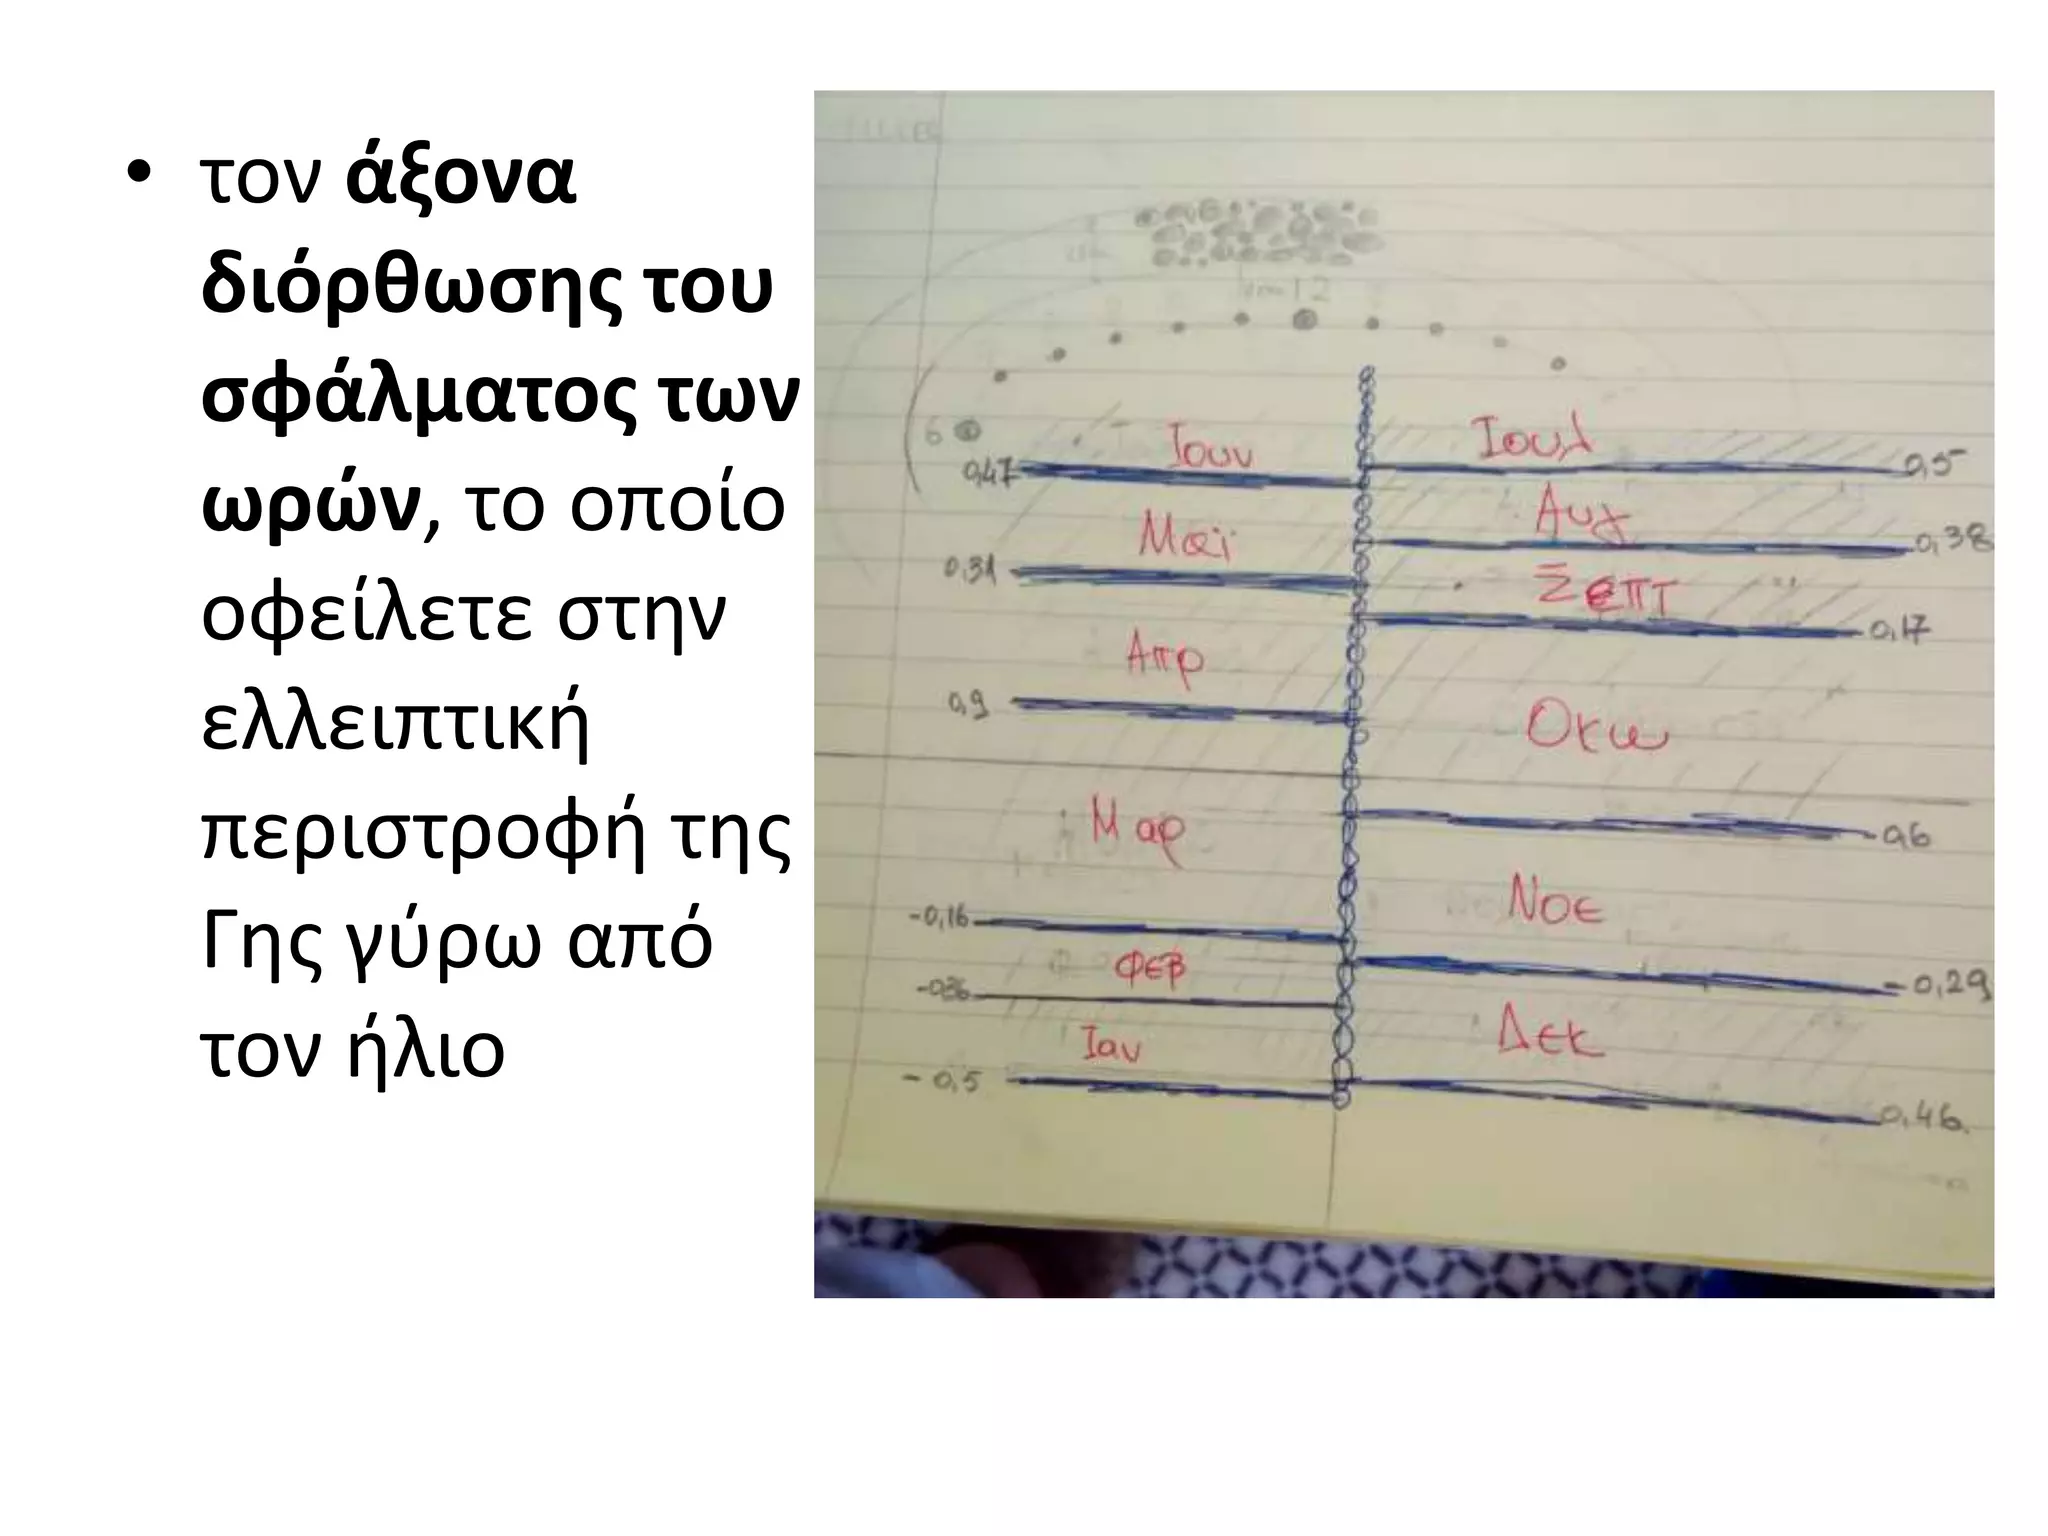 • τον άξονα
διόρθωσης του
σφάλματος των
ωρών, το οποίο
οφείλετε στην
ελλειπτική
περιστροφή της
Γης γύρω από
τον ήλιο
12
6
Ιουν Ιουλ
0,47 0,5
Μαϊ Αυγ
0,31 0,38
Σεπτ
0,17
Απρ
0,9
Οκτω
Μαρ
0,6
Νοε
-0,16
Φεβ
-0,29
-0,36
Ιαν Δεκ
-0,5 0,46